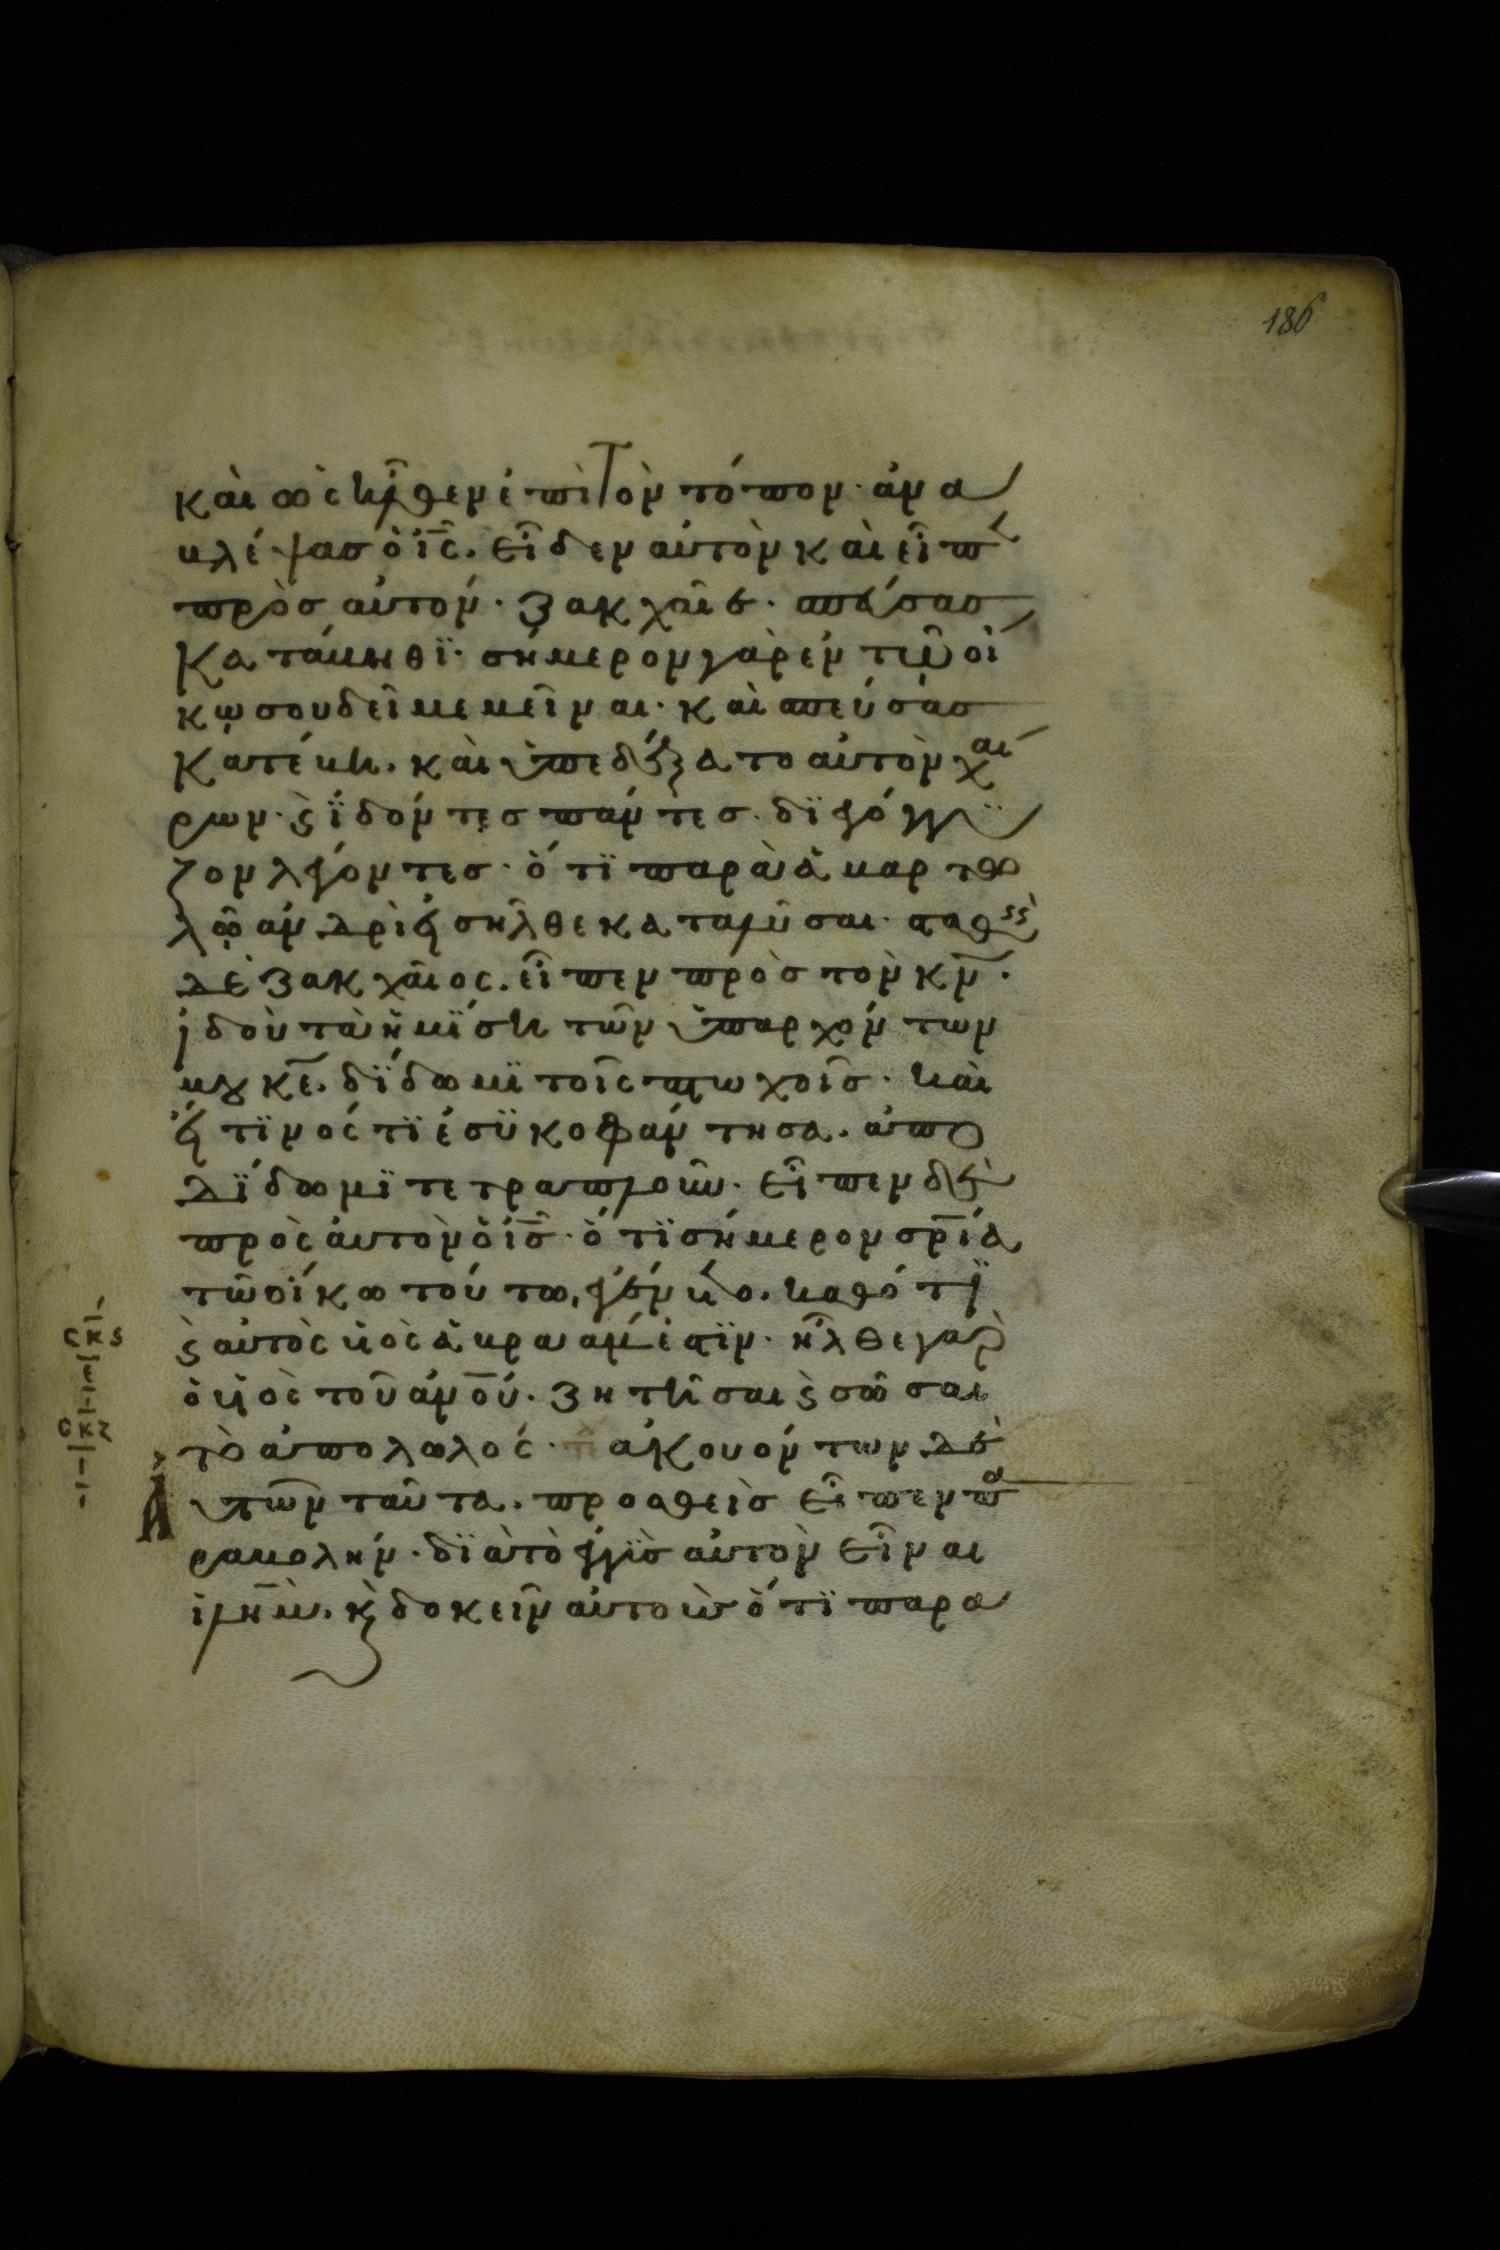 186
καὶ ὡς ἦλθεν ἐπὶ τὸν τόπον· ἀνα
βλέψας ὁ ἰς̅. εἶδεν αὐτὸν καὶ εἶπ
πρὸς αὐτόν· ζακχαῖε· σπεύσας
κατάβηθϊ· σήμερον γὰρ ἐν τῶ οἴ
κῳ σου δεῖ με μεῖναι· καὶ σπεύσας
κατέβη. καὶ ὑπεδέξατο αὐτὸν χαί
ρων· ϛ ἰδόντες πάντες. δϊεγόγγϋ
ζον λέγοντες· ὅτϊ παρὰ ἁμαρτω
λῷ ἀνδρὶ εἰσῆλθε καταλῦσαι· σταθεὶς
δὲ ζακχαῖος. εἶπεν πρὸς τὸν κν̅·
ἰδοὺ τὰ ἡμίση τῶν ὑπαρχόντων
μου κε̅. δίδωμϊ τοῖς πτωχοῖς· καὶ
εἴ τϊνός τϊ ἐσϋκοφάντησα. ἀπο
δίδωμϊ τετραπλοῦν· εἶπεν δὲ
πρὸς αὐτὸν ὁ ἰς̅· ὅτϊ σήμερον σρ̅ία
τῶ οἴκω τούτω, ἐγένετο. καθότϊ
ϛ αὐτὸς ὑὸς ἁβρααμ ἐστϊν· ἦλθε γὰρ
ὁ ὑὸς τοῦ ἀνο̅ύ. ζητῆσαι ϛ σῶσαι
τὸ ἀπολωλός· ἀκουόντων δὲ
αὐτῶν ταῦτα. προσθεὶς εἶπεν πα
ραβολήν· δϊὰ τὸ ἐγγὺς αὐτὸν εἶναι
ἰλη̅μ. κ̀ δοκεῖν αὐτοὺς ὅτϊ παρα
ϲκϛ
ϲκζ